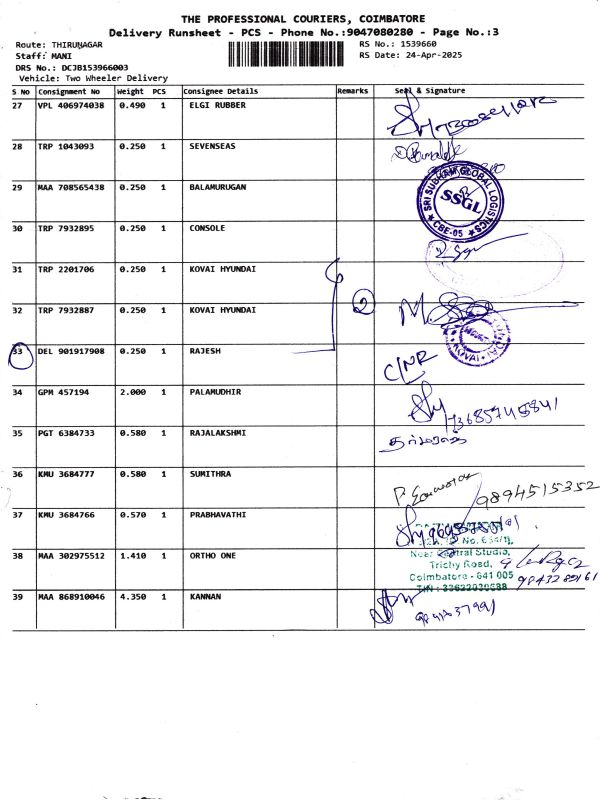 THE PROFESSIONAL COURIERS, COIMBATORE
Delivery Runsheet - PCS - Phone No.:9047080280 - Page No.:3
Route: THIRUNAGAR
RS No.: 1539660
Staff: MANI
RS Date: 24-Apr-2025
DRS No.: DCJB153966003
Vehicle: Two Wheeler Delivery
S No Consignment No Weight PCS Consignee Details Remarks Seal & Signature
27 VPL 406974038 0.490 1 ELGI RUBBER
28 TRP 1043093 0.250 1 SEVENSEAS
29 MAA 708565438 0.250 1 BALAMURUGAN
SRI SUBHAM GLOBAL LOGISTICS
SSGL
★ CBE-05 ★
30 TRP 7932895 0.250 1 CONSOLE
31 TRP 2201706 0.250 1 KOVAI HYUNDAI
2
32 TRP 7932887 0.250 1 KOVAI HYUNDAI
KOVAI
33 DEL 901917908 0.250 1 RAJESH
C/NR
34 GPM 457194 2.000 1 PALAMUDHIR
35 PGT 6384733 0.580 1 RAJALAKSHMI
36 KMU 3684777 0.580 1 SUMITHRA
9894515352
37 KMU 3684766 0.570 1 PRABHAVATHI
38 MAA 302975512 1.410 1 ORTHO ONE
Near Central Studio,
Trichy Road,
Coimbatore - 641 005
39 MAA 868910046 4.350 1 KANNAN